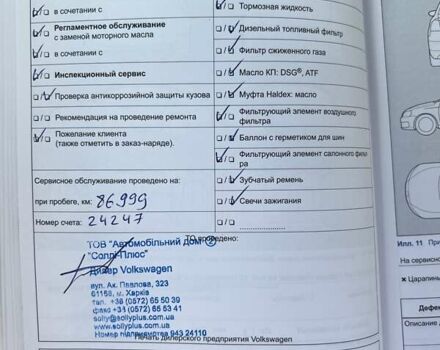 в сочетании с
Тормозная жидкость
Регламентное обслуживание
с заменой моторного масла
Дизельный топливный фильтр
в сочетании с
Фильтр сжиженного газа
Инспекционный сервис
Масло КП: DSG®, ATF
Проверка антикоррозийной защиты кузова
Муфта Haldex: масло
Рекомендация на проведение ремонта
Фильтрующий элемент воздушного
фильтра
Пожелание клиента
(также отметить в заказ-наряде).
Баллон с герметиком для шин
Фильтрующий элемент салонного фильт
ра
Сервисное обслуживание проведено на:
Зубчатый ремень
при пробеге, км: 86999
Свечи зажигания
Номер счета: 24247
ТО проведено:
ТОВ "Автомобільний Дім 2
"Соллі-Плюс"
Дилер Volkswagen
вул. Ак. Павлова, 323
61168, м. Харків
тел. +38 (0572) 65 50 39
факс +38 (0572) 65 53 41
solly@sollyplus.com.ua
www.sollyplus.com.ua
Номер підприємства 943 24110
Печать дилерского предприятия Volkswagen
Илл. 11 При
На сервисно
× Царапины
Дефек
Описание